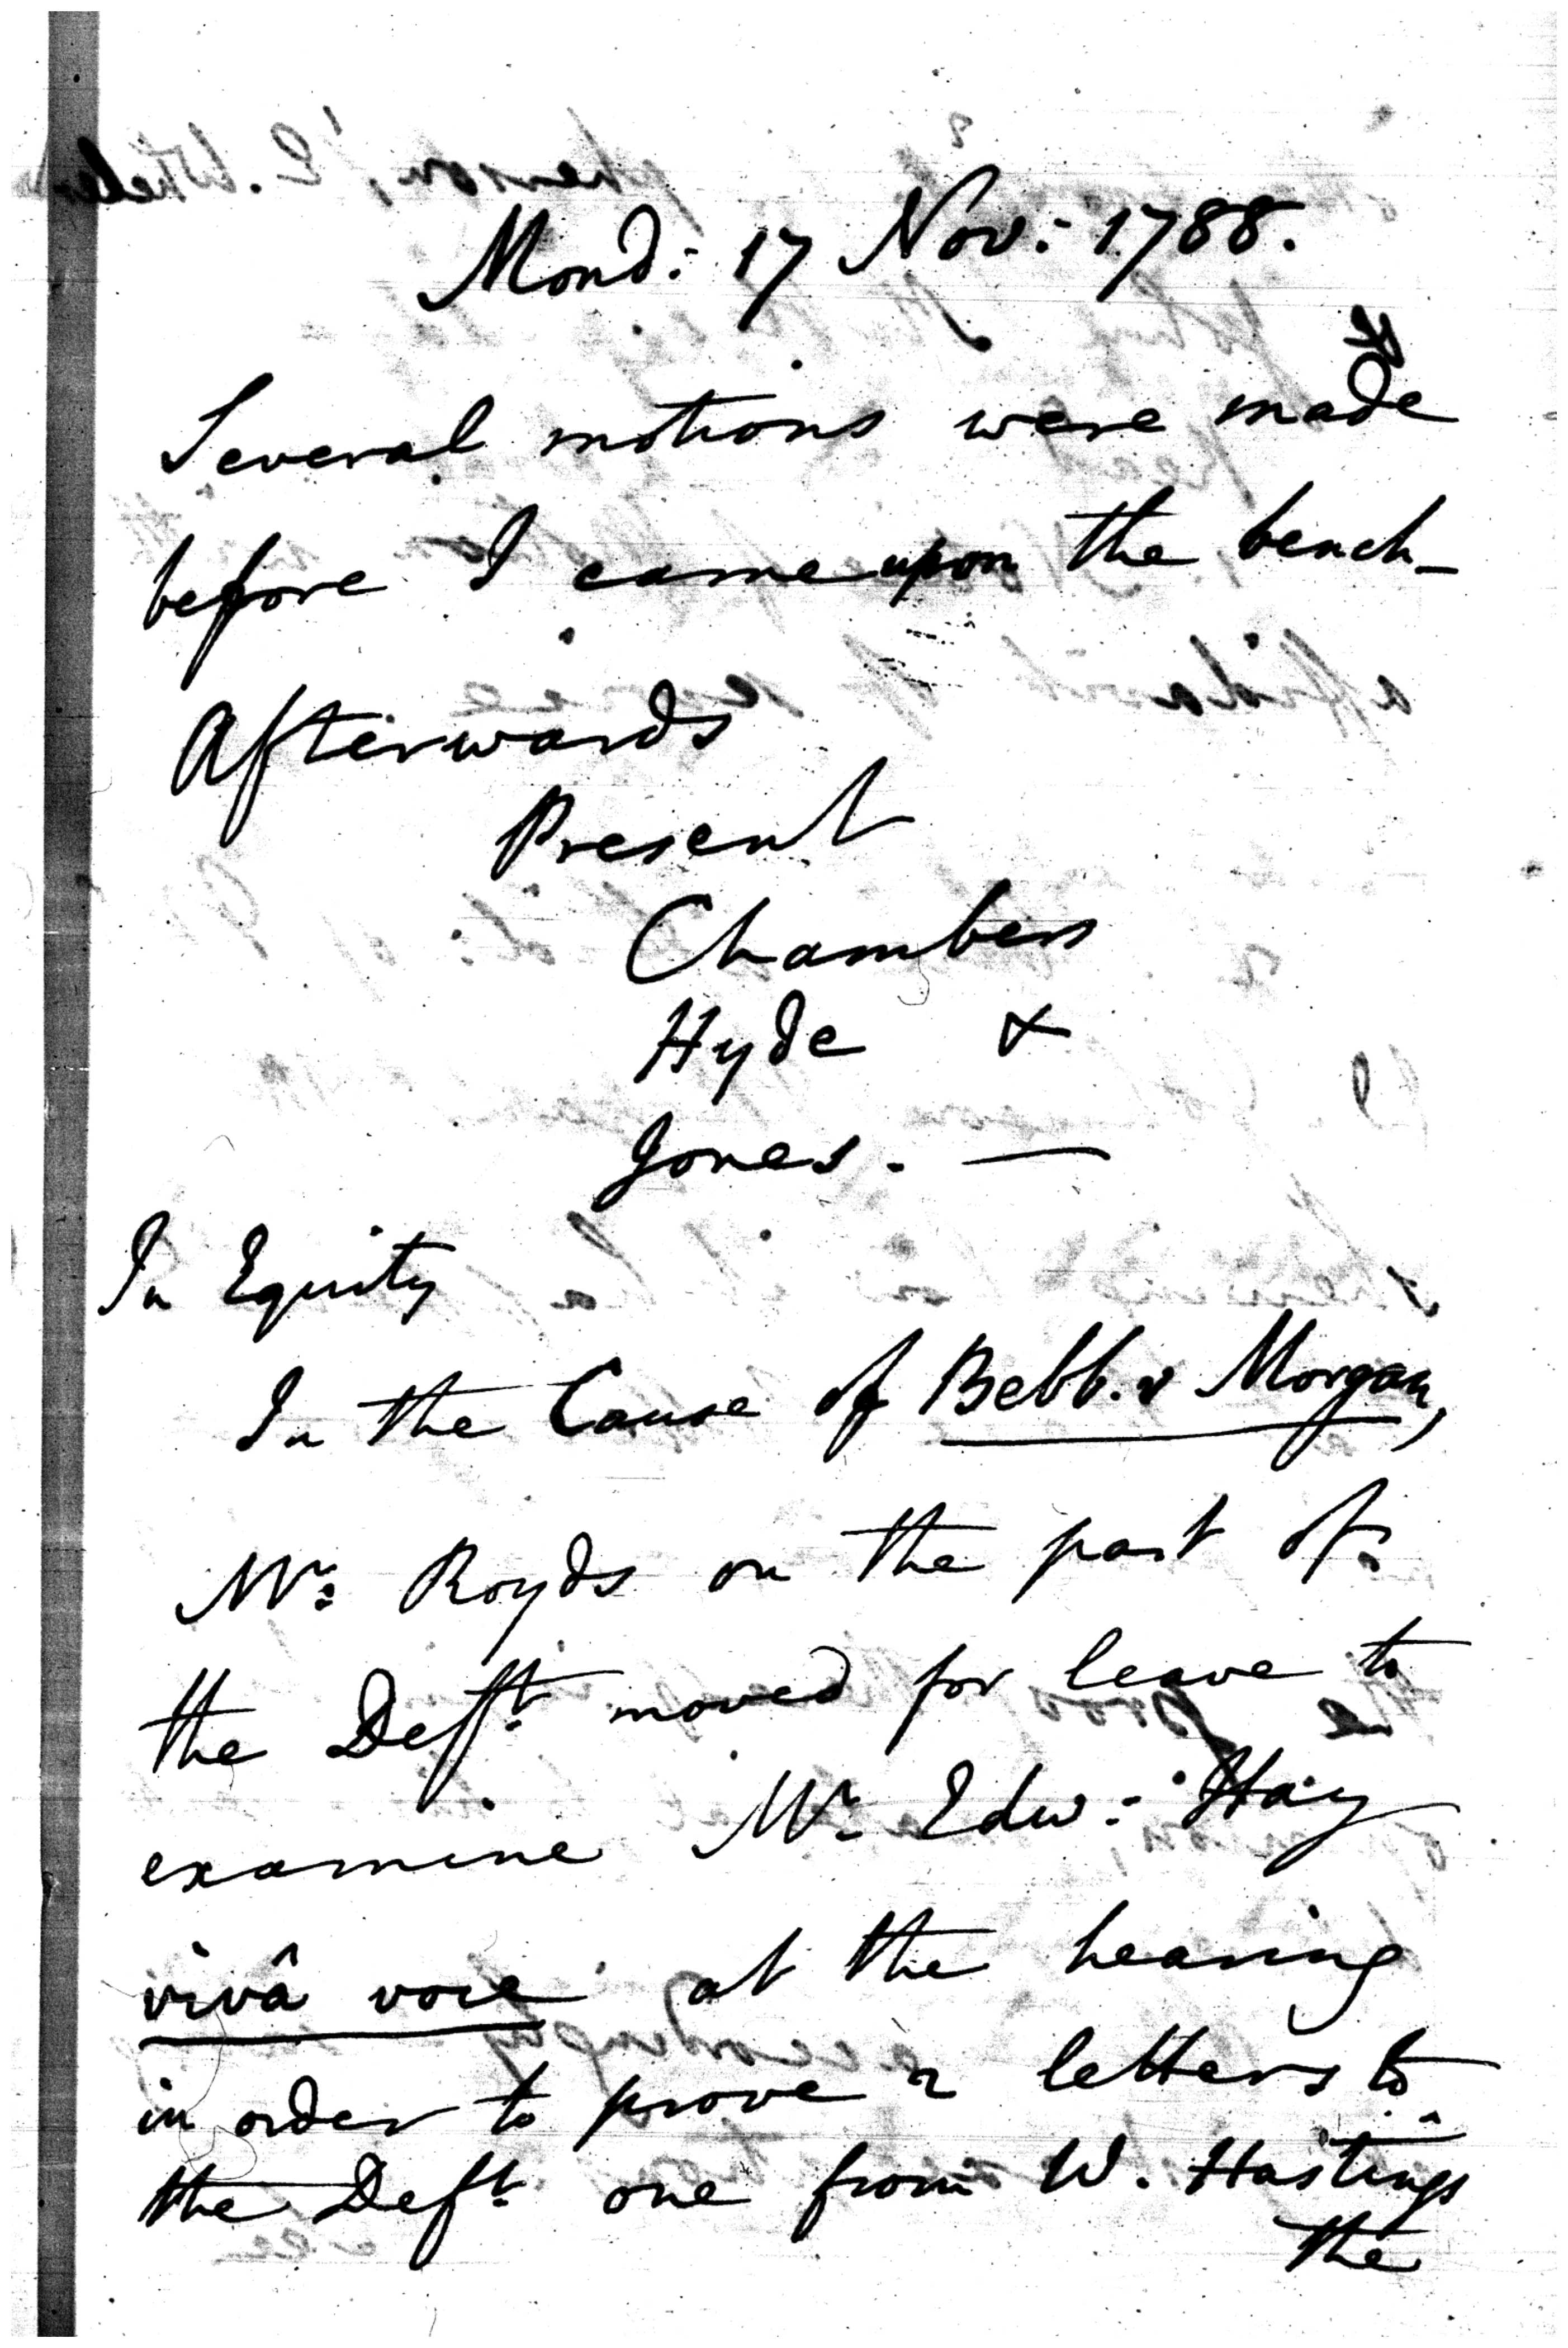 Mond: 17 Nov: 1788.
Several motions were made
before I came upon the bench_
Afterwards
Present
Chambers
Hyde &
Jones. —
In Equity
In the Cause of Bebb. v Morgan,
Mr: Royds on the part of
the Deft. moved for leave to
examine Mr. Edw: Hay
vivâ voce at the hearing
in order to prove 2 letters to
the Deft. one from W. Hastings
the